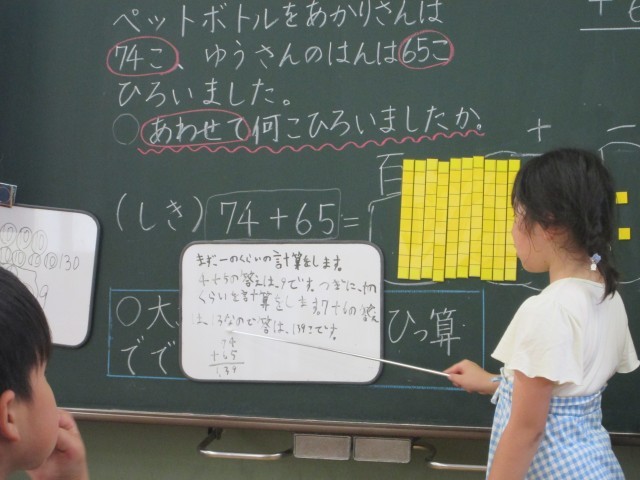 ペットボトルをあかりさんは
74こ、ゆうさんのはんは65こ
ひろいました。
○あわせて何こひろいましたか。
+
−
百
(しき) 74+65=
まず一のくらいの計算をします。
4+5の答えは、9です。つぎに、十の
くらいを計算をします。7+6の答え
は、13なので答は、139こです。
74
+65
139
○大
ひっ算
でで
130
9